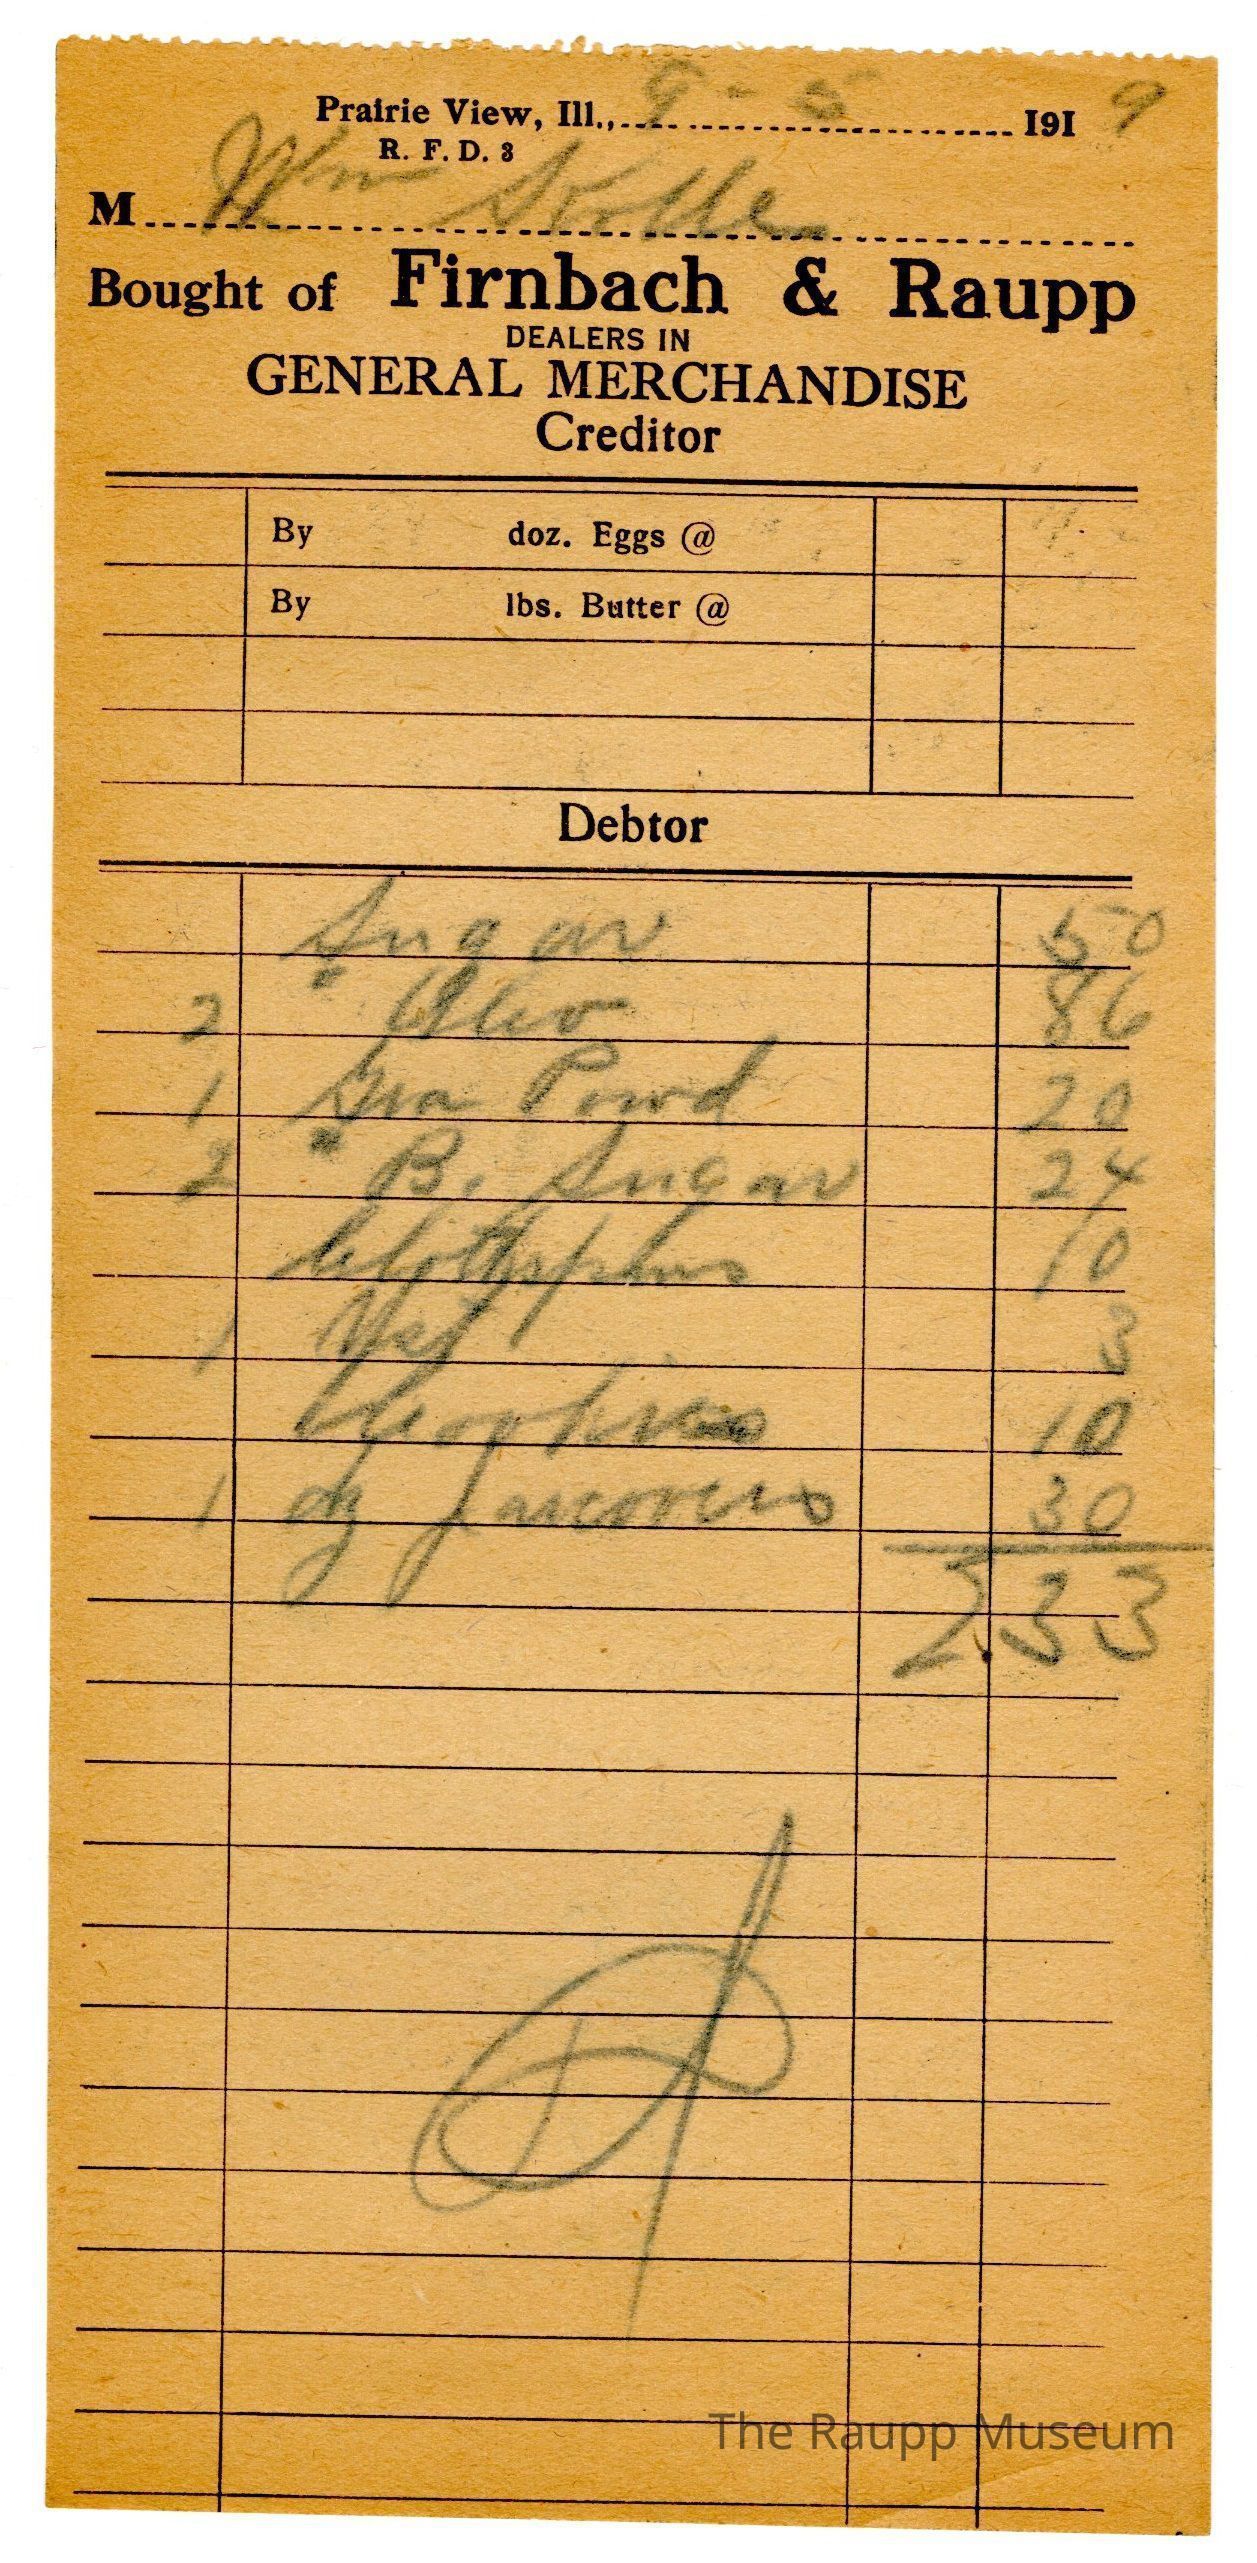 Prairie View, Ill., 9-5 1919
R. F. D. 3
M Wm
Bought of Firnbach & Raupp
DEALERS IN
GENERAL MERCHANDISE
Creditor
By doz. Eggs @
By lbs. Butter @
Debtor
Sugar 50
2 " Oleo 86
1 Gra Powd 20
2 " B. Sugar 24
10
1 Yst 3
10
1 dz 30
2.33
The Raupp Museum